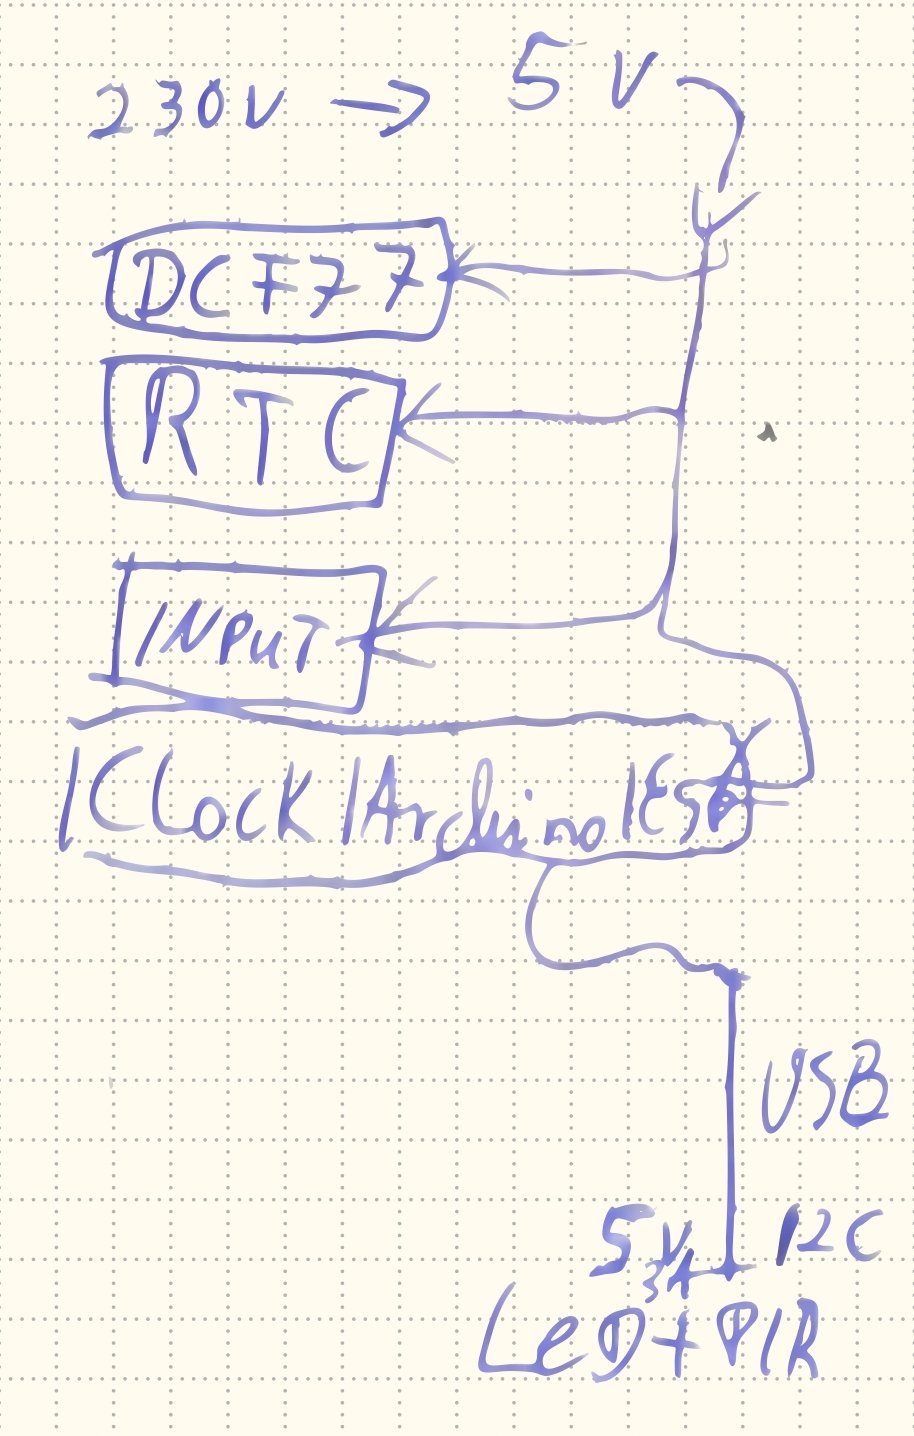 230V → 5V
DCF77
RTC
INPUT
Clock Arduino ESP
USB
5V I2C
3A
LED+PIR